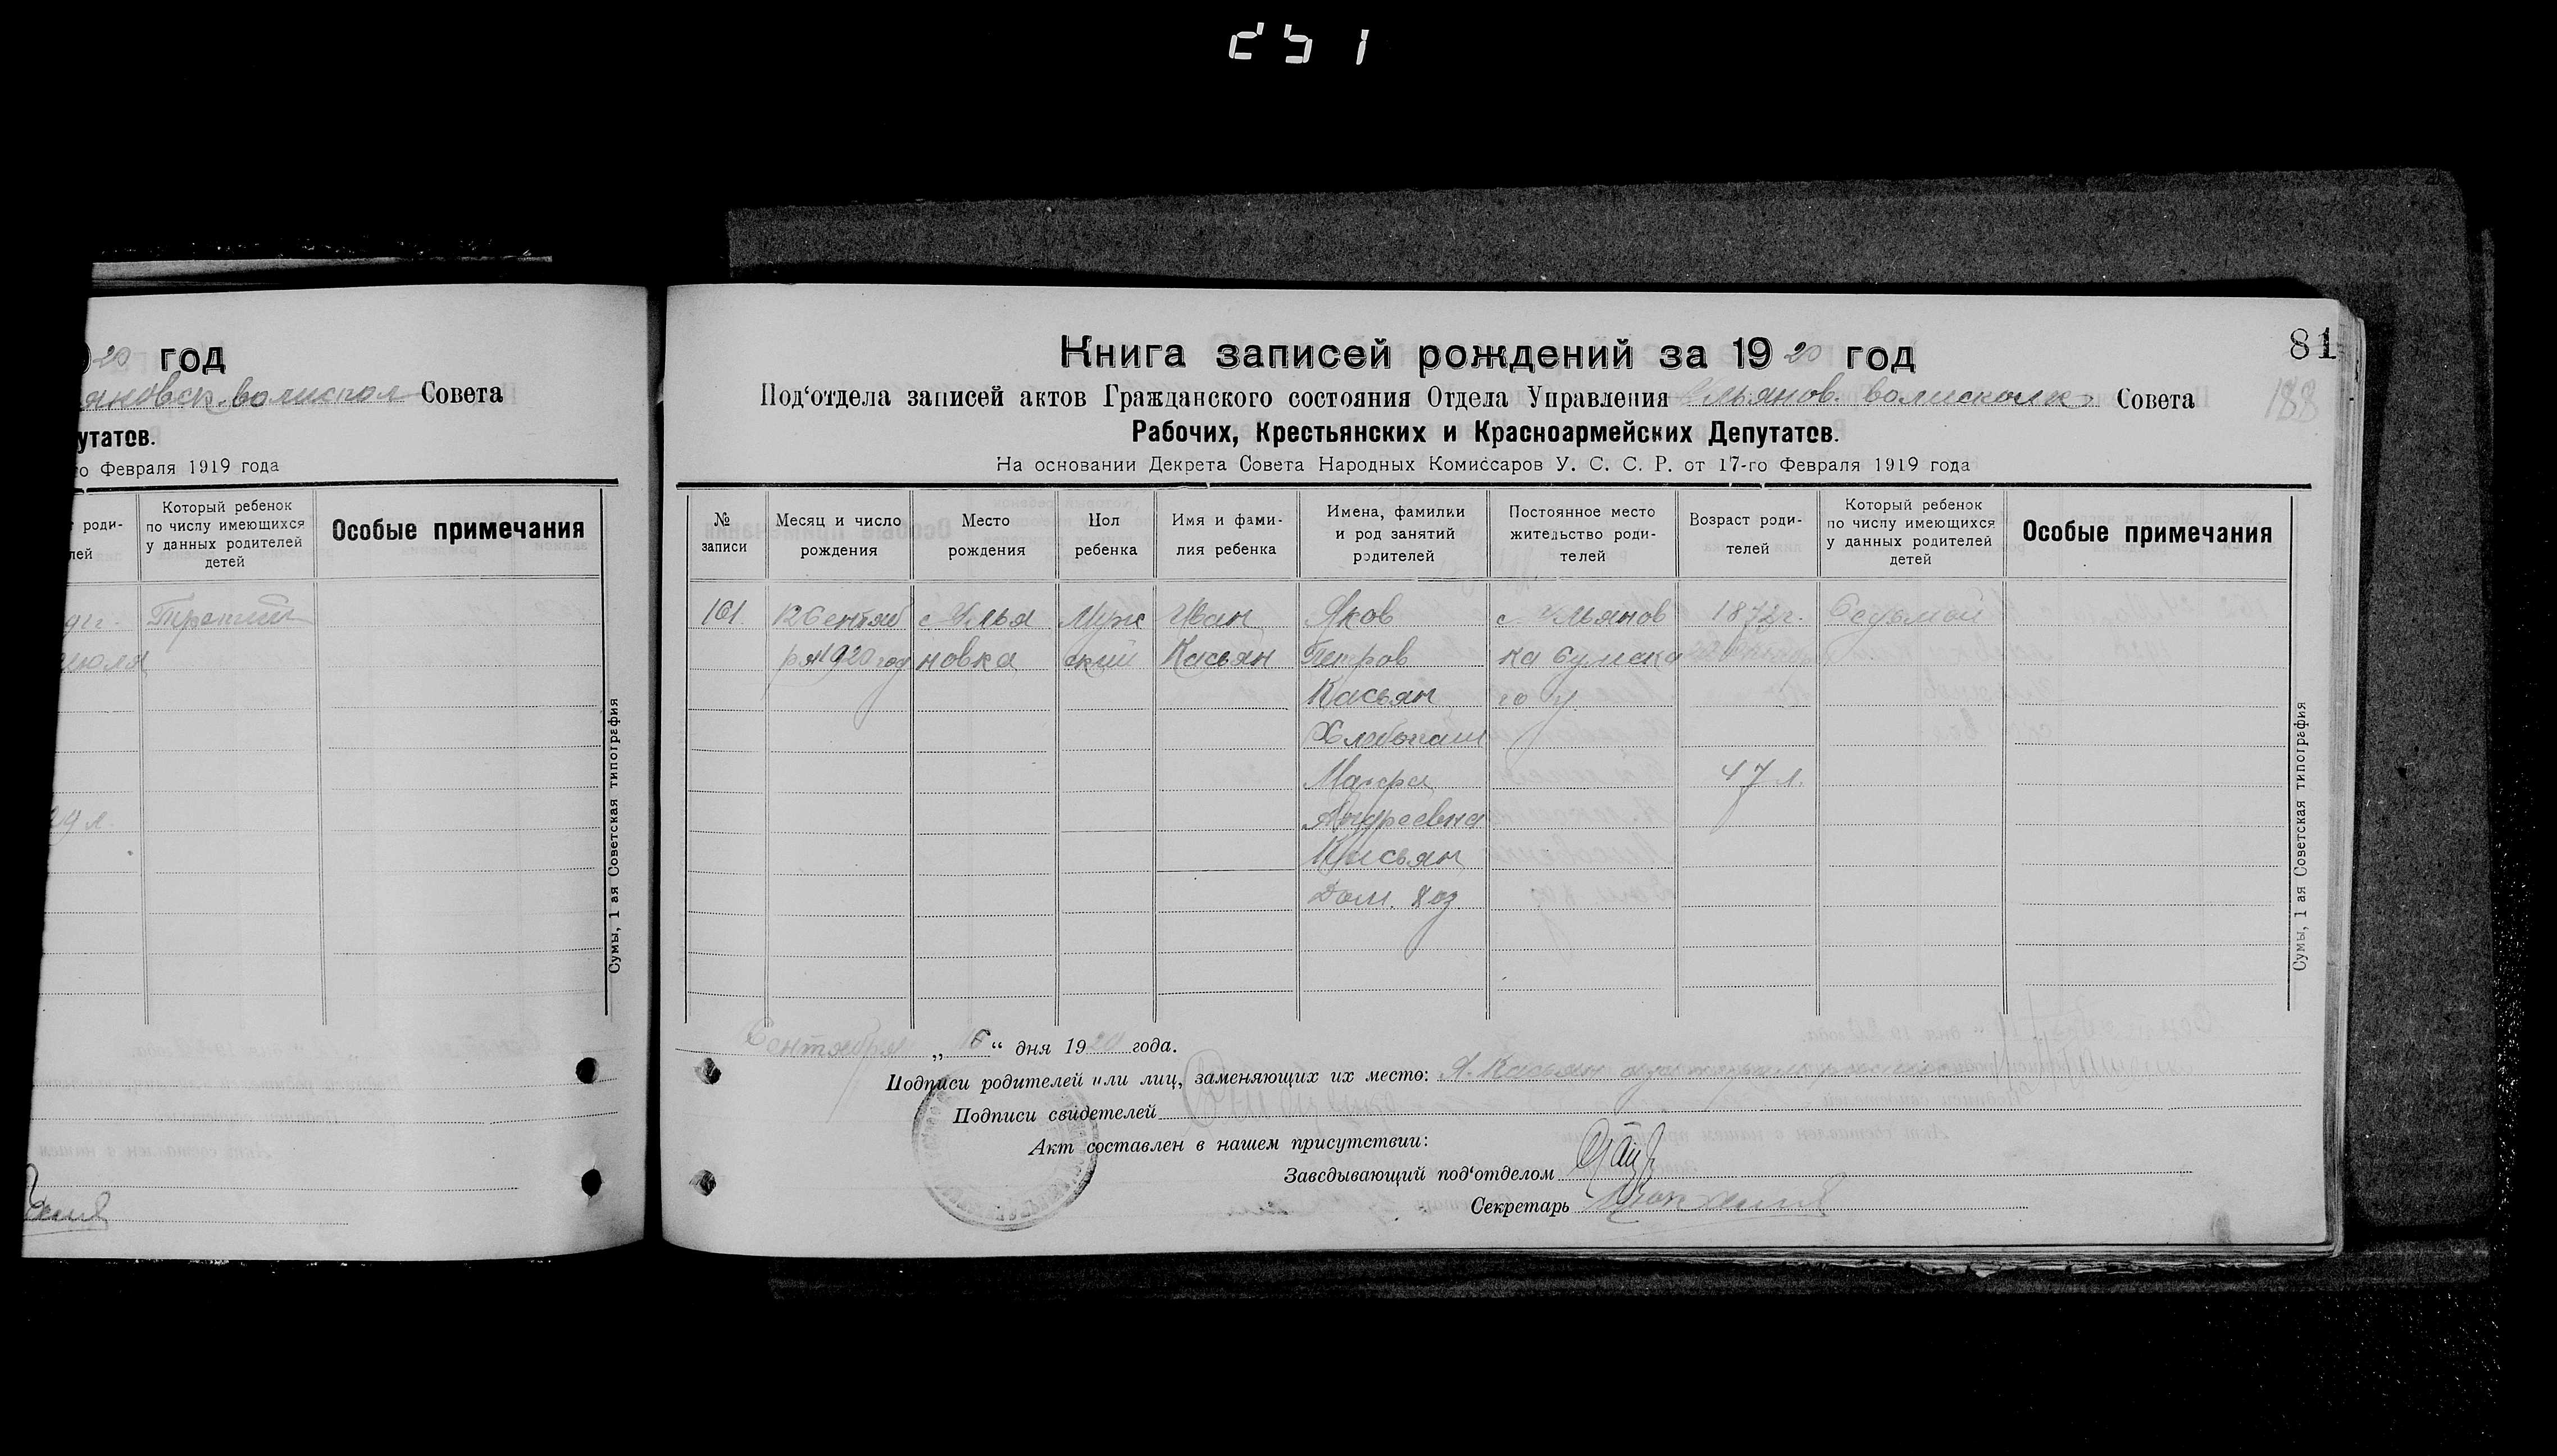 20 год
яновск. волиспол Совета
утатов.
го Февраля 1919 года
роди-
лей
Который ребенок
по числу имеющихся
у данных родителей
детей
Особые примечания
Третий
июля
29 л.
Сумы, 1 ая Советская типография
81
188
Книга записей рождений за 1920 год
Под'отдела записей актов Гражданского состояния Отдела Управления Ульянов. волисполк Совета
Рабочих, Крестьянских и Красноармейских Депутатов.
На основании Декрета Совета Народных Комиссаров У. С. С. Р. от 17-го Февраля 1919 года
№
записи
Месяц и число
рождения
Место
рождения
Пол
ребенка
Имя и фами-
лия ребенка
Имена, фамилии
и род занятий
родителей
Постоянное место
жительство роди-
телей
Возраст роди-
телей
Который ребенок
по числу имеющихся
у данных родителей
детей
Особые примечания
161
12 Сентяб
ря 1920 год
с. Улья
новка
Муж
ский
Иван
Касьян
Яков
Петров
Касьян
Хлебопаш
Марфа
Андреевна
Касьян
Дом. хоз.
с. Ульянов
ка Сумско
го у
1872 г.
47 л.
Седьмой
Сумы, 1 ая Советская типография
Сентября „16“ дня 1920 года.
Подписи родителей или лиц, заменяющих их место: Я. Касьян
Подписи свидетелей
Акт составлен в нашем присутствии:
Заведывающий под'отделом
Секретарь